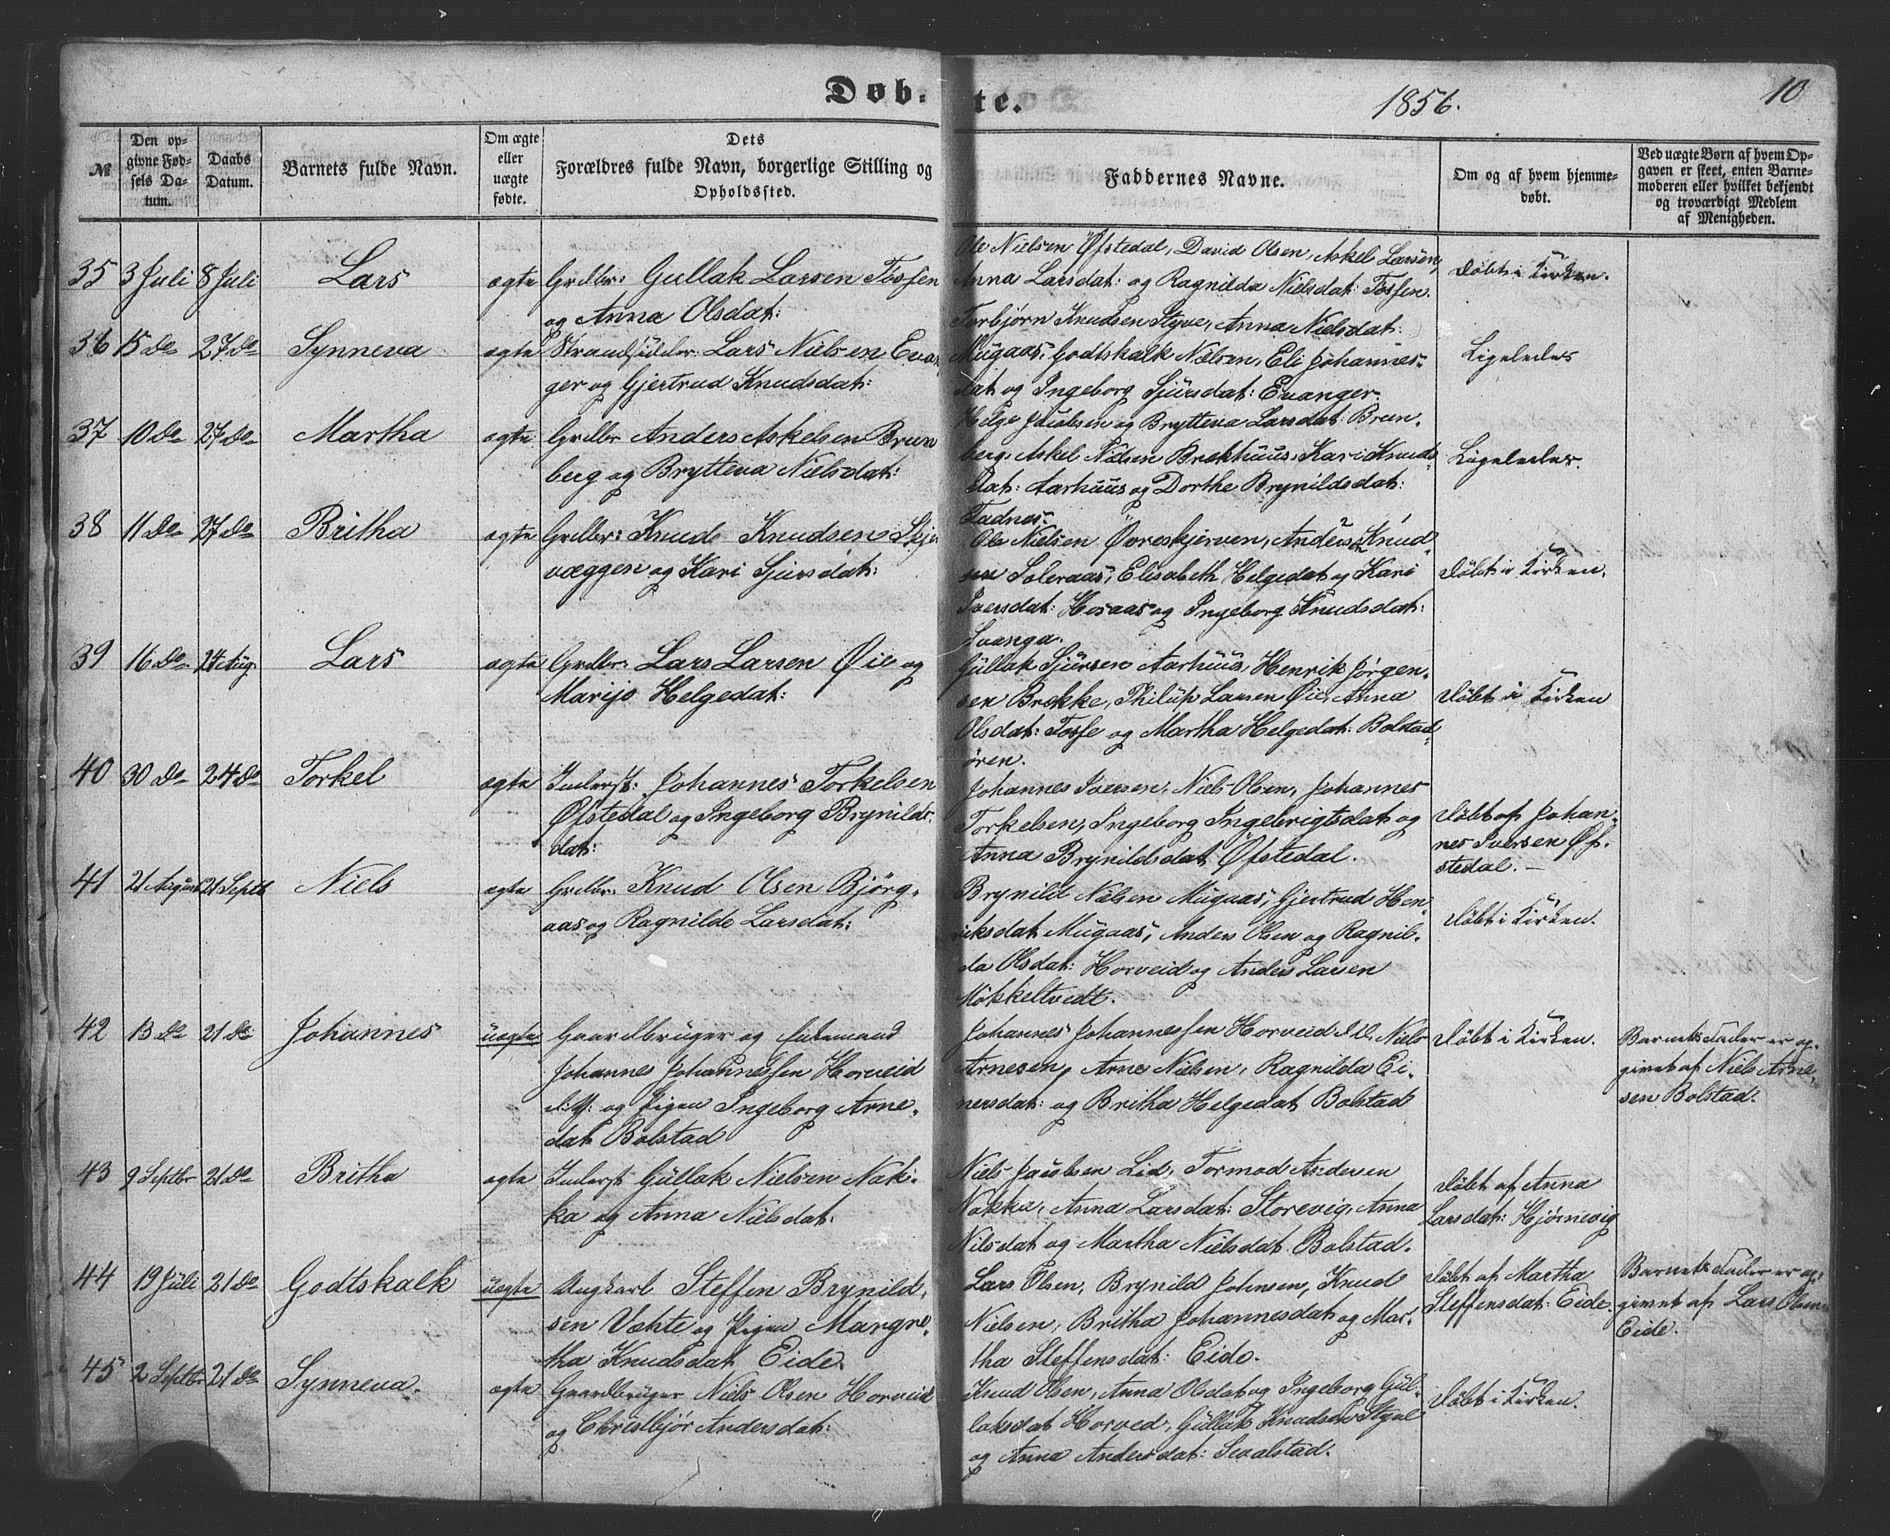 Døbte.
1856.
10
№
Den opgivne Fødsels Datum.
Daabs Datum.
Barnets fulde Navn.
Om ægte eller uægte fødte.
Dets Forældres fulde Navn, borgerlige Stilling og Opholdssted.
Faddernes Navne.
Om og af hvem hjemmedøbt.
Ved uægte Børn af hvem Opgaven er skeet, enten Barnemoderen eller hvilket bekjendt og troværdigt Medlem af Menigheden.
35 3 Juli 8 Juli Lars ægte
Grdbr: Gullak Larsen Fosse
og Anna Olsdat:
Ole Nielsen Øfstedal, David Olsen, Askel Larsen,
Anna Larsdat: og Ragnilda Nielsdat: Fosse.
Døbt i Kirken.
36 15 Do 27 Do Synneva ægte
Strandsidder Lars Nielsen Evan-
ger og Gjertrud Knudsdat:
Torbjørn Knudsen Styve, Anna Nielsdat:
Mugaas, Godtskalk Nielsen, Eli Johannes-
dat og Ingeborg Sjursdat: Evanger.
Ligeledes
37 10 Do 27 Do Martha ægte
Grdbr Anders Askelsen Brun
berg og Brytteva Nielsdat:
Helge Jacobsen og Brytteva Larsdat: Brun-
berg, Askel Nielsen Brekhuus, Kari Knuds-
dat: Aarhuus og Dorthe Brynildsdat:
Fadnes.
Ligeledes.
38 11 Do 27 Do Britha ægte
Grdbr: Knud Knudsen Skje
væggen og Kari Sjursdat:
Ole Nielsen Øvreskjerven, Anders Knud-
sen Soleraas, Elisabeth Helgedat og Kari
Iversdat: Horaas og Ingeborg Knudsdat:
Evanga.
Døbt i Kirken.
39 16 Do 24 Aug. Lars ægte
Grdbr: Lars Larsen Øie og
Marijo Helgedat:
Gullak Sjursen Aarhuus, Henrik Jørgen-
sen Brekke, Philip Larsen Øie, Anna
Olsdat: Fosse og Martha Helgedat: Bolstad-
øren.
Døbt i Kirken
40 30 Do 24 Do Torkel ægte
Inderst: Johannes Torkelsen
Øfstedal og Ingeborg Brynilds-
dat:
Johannes Iversen, Niels Olsen, Johannes
Torkelsen, Ingeborg Ingebrigtsdat og
Anna Brynildsdat Øfstedal.
Døbt af Johan-
nes Iversen Øf-
stedal. –
41 21 August 21 Septb Niels ægte
Grdbr: Knud Olsen Bjørg-
aas og Ragnilde Larsdat:
Brynild Nielsen Mugaas, Gjertrud Hen-
riksdat Mugaas, Anders Olsen og Ragnil-
da Olsdat: Horveid og Anders Larsen
Møkkeltvedt.
Døbt i Kirken.
42 13 Do 21 Do Johannes uægte
Gaardbruger og Enkemand
Johannes Johannessen Horveid
og Pigen Ingeborg Arne-
dat Bolstad
Johannes Johannessen Horveid Niels
Arnesen, Arne Nielsen, Ragnilda Ei-
nersdat: og Britha Helgedat Bolstad
Døbt i Kirken.
Barnets Fader er op-
givet af Niels Arne-
sen Bolstad.
43 9 Septbr 21 Do Britha ægte
Inderst Gullak Nielsen Nak-
ka og Anna Nielsdat:
Niels Jacobsen Lid, Tormod Andersen
Nakka, Anna Larsdat: Storevig, Anna
Nilsdat og Martha Nielsdat Bolstad.
Døbt af Anna
Larsdat: Hjørnevig
44 19 Juli 21 Do Godtskalk uægte
Ungkarl Steffen Brynild-
sen Væhte og Pigen Margre-
tha Knudsdat Eide.
Lars Olsen, Brynild Johnsen, Knud
Nielsen, Britha Johannesdat og Mar-
tha Steffensdat: Eide.
Døbt af Martha
Steffensdat: Eide.
Barnets Fader er op-
givet af Lars Olsen
Eide.
45 2 Septbr 21 Do Synneva. ægte
Gaardbruger Niels Olsen Horveid
og Christbjør Andersdat:
Knud Olsen, Anna Olsdat og Ingeborg Gul-
laksdat Horveid, Gullak Knudsen Styve
og Anna Andersdat: Evalstad.
Døbt i Kirken.